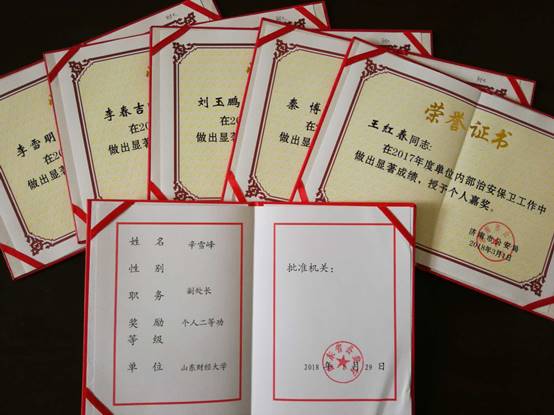 李雪明
在2
做出显著
李春吉
在20
做出显著
刘玉鹏
在20
做出显著
秦博
在2
做出显
荣誉证书
王红春同志:
在2017年度单位内部治安保卫工作中
做出显著成绩，授予个人嘉奖。
济南市公安局
2018年3月1日
姓名 辛雪峰
性别
职务 副处长
奖励 个人二等功
等级
单位 山东财经大学
批准机关：
2018年 月29日